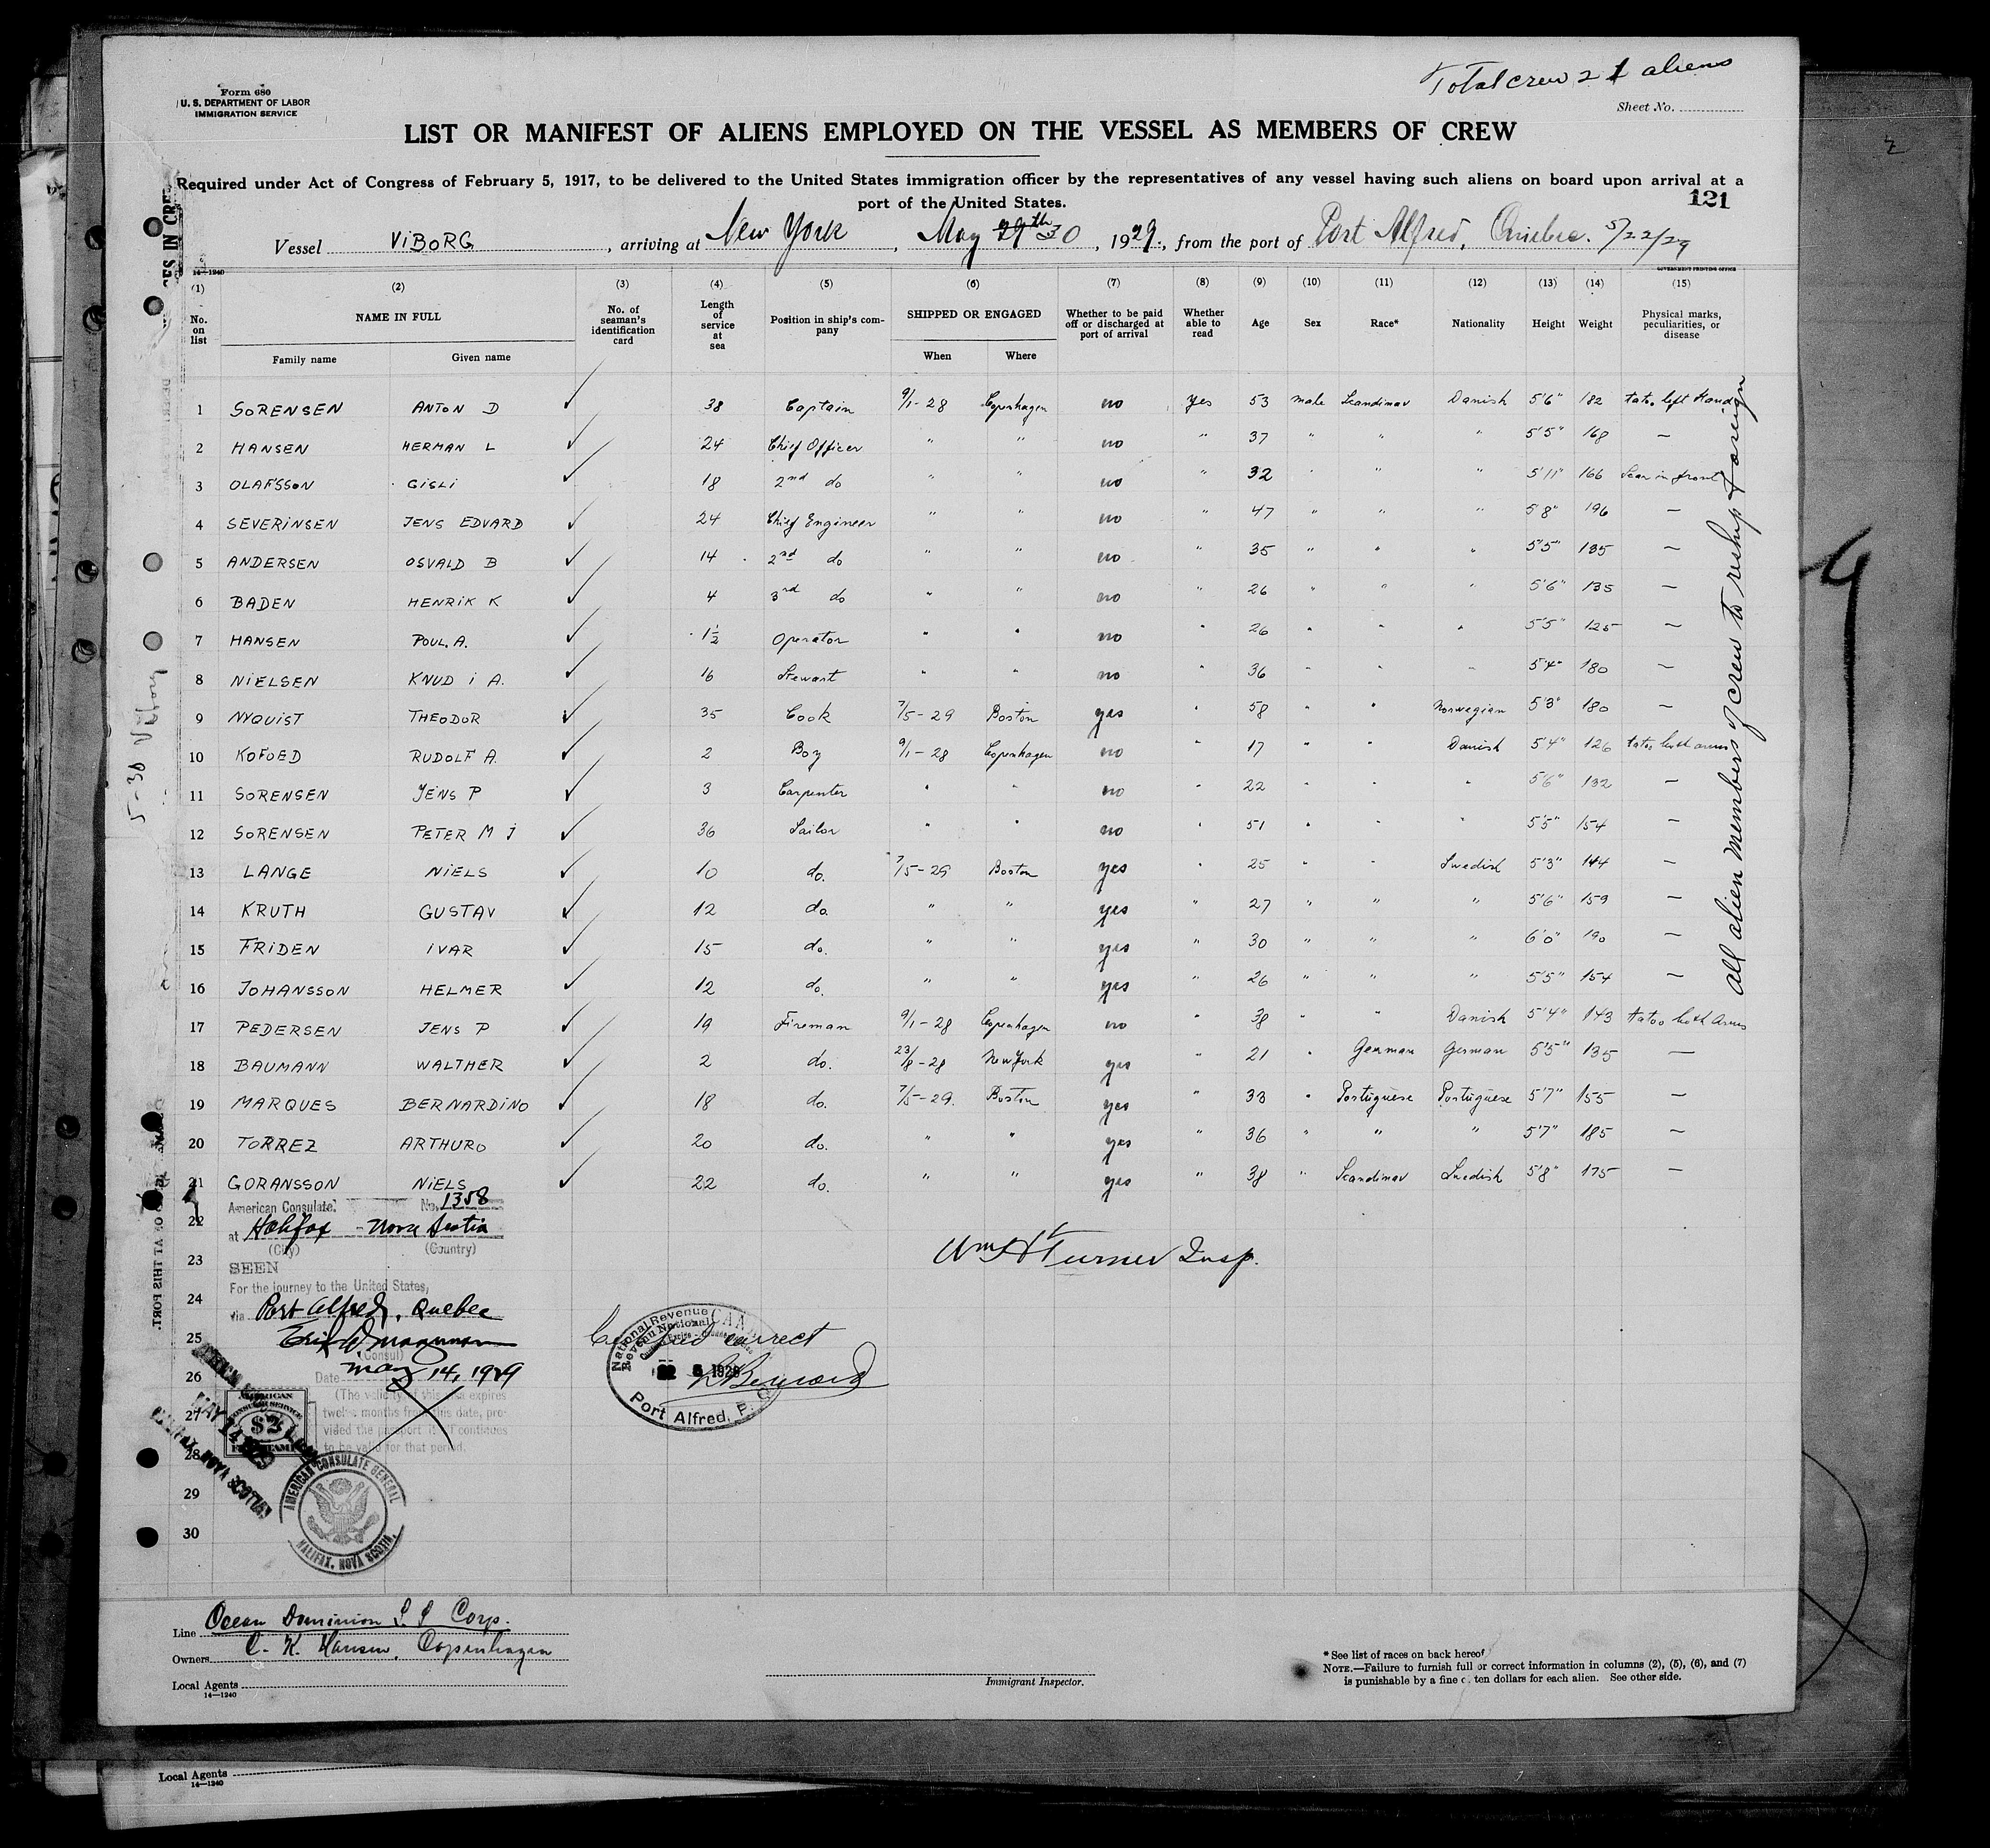 Total crew 21 aliens
Form 680
U. S. DEPARTMENT OF LABOR
IMMIGRATION SERVICE
Sheet No.
LIST OR MANIFEST OF ALIENS EMPLOYED ON THE VESSEL AS MEMBERS OF CREW
Required under Act of Congress of February 5, 1917, to be delivered to the United States immigration officer by the representatives of any vessel having such aliens on board upon arrival at a
port of the United States.
121
Vessel ViBORG, arriving at New York, May 29th 30, 1929, from the port of Port Alfred, Quebec. 5/22/29
14—1240
GOVERNMENT PRINTING OFFICE
(1) (2) (3) (4) (5) (6) (7) (8) (9) (10) (11) (12) (13) (14) (15)
No. on list NAME IN FULL No. of seaman's identification card Length of service at sea Position in ship's company SHIPPED OR ENGAGED Whether to be paid off or discharged at port of arrival Whether able to read Age Sex Race* Nationality Height Weight Physical marks, peculiarities, or disease
Family name Given name When Where
1 SORENSEN ANTON D 38 Captain 9/1-28 Copenhagen no yes 53 male Scandinav Danish 5'6" 182 tatoo left Hand
2 HANSEN HERMAN L 24 Chief Officer " " no " 37 " " " 5'5" 168 —
3 OLAFSSON GISLI 18 2nd do " " no " 32 " " " 5'11" 166 Scar in front
4 SEVERINSEN JENS EDVARD 24 Chief Engineer " " no " 47 " " " 5'8" 196 —
5 ANDERSEN OSVALD B 14 2nd do " " no " 35 " " " 5'5" 135 —
6 BADEN HENRIK K 4 3rd do " " no " 26 " " " 5'6" 135 —
7 HANSEN POUL. A. 1½ Operator " " no " 26 " " " 5'5" 125 —
8 NIELSEN KNUD I A. 16 Stewart " " no " 36 " " " 5'4" 180 —
9 NYQUIST THEODOR 35 Cook 7/5-29 Boston yes " 58 " " Norwegian 5'3" 180 —
10 KOFOED RUDOLF A. 2 Boy 9/1-28 Copenhagen no " 17 " " Danish 5'4" 126 tatoo both arms
11 SORENSEN JENS P 3 Carpenter " " no " 22 " " " 5'6" 132 —
12 SORENSEN PETER M J 36 Sailor " " no " 51 " " " 5'5" 154 —
13 LANGE NIELS 10 do. 7/5-29 Boston yes " 25 " " Swedish 5'3" 144 —
14 KRUTH GUSTAV 12 do. " " yes " 27 " " " 5'6" 159 —
15 FRIDEN IVAR 15 do. " " yes " 30 " " " 6'0" 190 —
16 JOHANSSON HELMER 12 do. " " yes " 26 " " " 5'5" 154 —
17 PEDERSEN JENS P 19 Fireman 9/1-28 Copenhagen no " 38 " " Danish 5'4" 143 tatoo both Arms
18 BAUMANN WALTHER 2 do. 23/8-28 New York yes " 21 " German German 5'5" 135 —
19 MARQUES BERNARDINO 18 do. 7/5-29. Boston yes " 33 " Portuguese Portuguese 5'7" 155 —
20 TORREZ ARTHURO 20 do. " " yes " 36 " " " 5'7" 185 —
21 GORANSSON NIELS 22 do. " " yes " 38 " Scandinav Swedish 5'8" 175 —
All alien members of crew to reship foreign
5-30 Viborg
American Consulate. No. 1358
22
at Halifax - Nova Scotia
(City) (Country)
23
SEEN
Wm H Turner Insp.
For the journey to the United States,
24
via Port Alfred, Quebec
25
(Consul)
Certified correct
26
Date May 14, 1929
(The validity of this visa expires
27
twelve months from this date, provided the passport itself continues
28
to be valid for that period.
29
30
AMERICAN CONSULAR SERVICE $2 FEE STAMP
MAY 14 1929
HALIFAX, NOVA SCOTIA
AMERICAN CONSULATE GENERAL
HALIFAX, NOVA SCOTIA.
National Revenue CANADA
Revenu National
1929
Port Alfred, P. Q.
Bernard
Line Ocean Dominion S. S Corp.
Owners C. K. Hansen, Copenhagen
Local Agents
14—1240
Immigrant Inspector.
* See list of races on back hereof
NOTE.—Failure to furnish full or correct information in columns (2), (5), (6), and (7)
is punishable by a fine of ten dollars for each alien. See other side.
Local Agents
14—1240